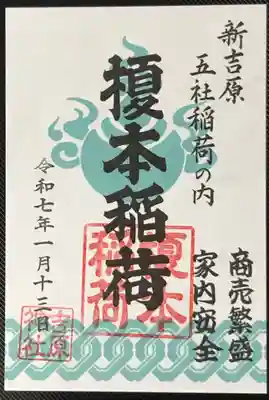 新吉原
五社稲荷の内
商売繁盛
家内安全
榎本稲荷
榎本
稲荷
令和七年一月十三日
吉原
神社